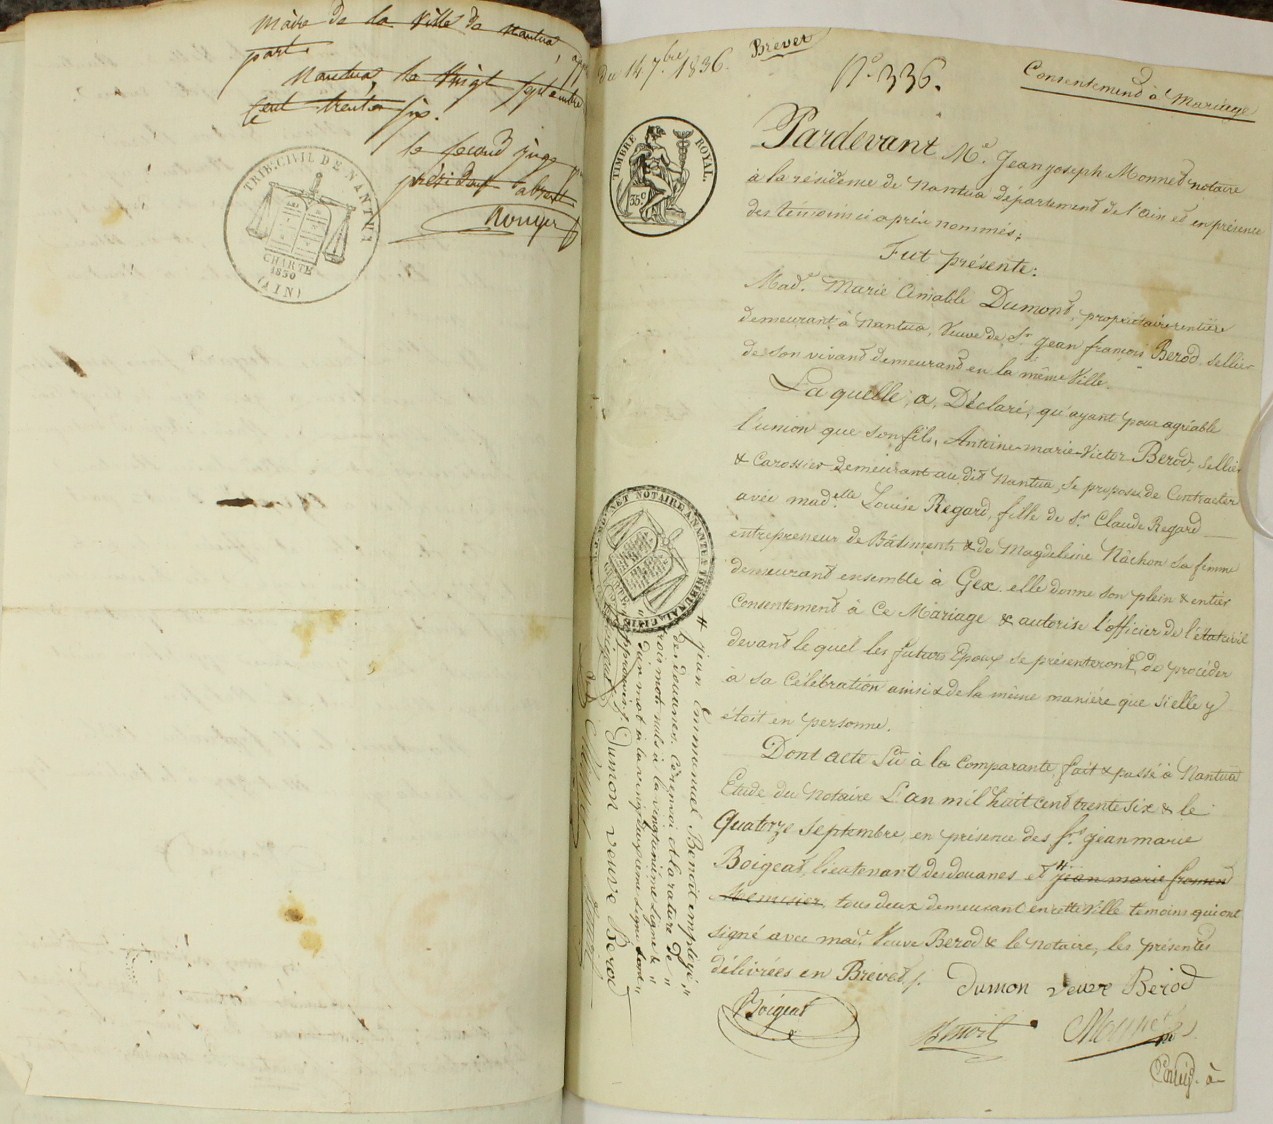 Maire de la Ville de Nantua,
part.
Nantua, le Vingt Septembre
Cent trente six.
le second juge
président absent
Rouyer
TRIB. CIVIL DE NANTUA
CHARTE
1830
(AIN)
Du 14 7.bre 1836.
Brevet
N.o 336.
Consentement à Mariage
TIMBRE ROYAL.
35 c
Pardevant M.e Jean joseph Monnet notaire
à la résidence de Nantua département de l'ain et en présence
des témoins ci après nommés;
Fut présente:
Mad.e Marie Aimable Dumont, propriétaire rentière
demeurant à Nantua, Veuve de S.r Jean françois Berod sellier
de son vivant demeurant en la même Ville.
La quelle, a, Déclaré, qu'ayant pour agréable
l'union que son fils, Antoine-marie-Victor Berod, Sellier
& Carossier demeurant au dit Nantua, se propose de Contracter
avec mad.elle Louise Regard, fille de S.r Claude Regard
entrepreneur de Bâtiments & de Magdeleine Nâchon sa femme
demeurant ensemble à Gex, elle donne son plein & entier
Consentement à Ce Mariage & autorise l'officier de l'état civil
devant le quel les futurs Epoux se présenteront, de procéder
à sa Célébration ainsi & de la même manière que si elle y
étoit en personne.
Dont acte Lû à la Comparante, fait & passé à Nantua
Etude du Notaire L'an mil huit cent trente six & le
Quatorze Septembre, en présence des S.rs jean marie
Boigeat, lieutenant des douanes et # jean marie froment
Menusier, tous deux demeurant en cette Ville temoins qui ont
signé avec mad.e Veuve Berod & le notaire, les présentes
délivrées en Brevet /.
Dumon veuve Bérod
Boigeat
Benoit
Monnet
# jean Emmanuel Benoit employé
des douanes. Ce renvoi et la rature de
trois mots nuls à la vingtunième ligne &
d'un mot à la vingtdeuxième ligne sont
approuvés
Boigeat
Dumon veuve Berod